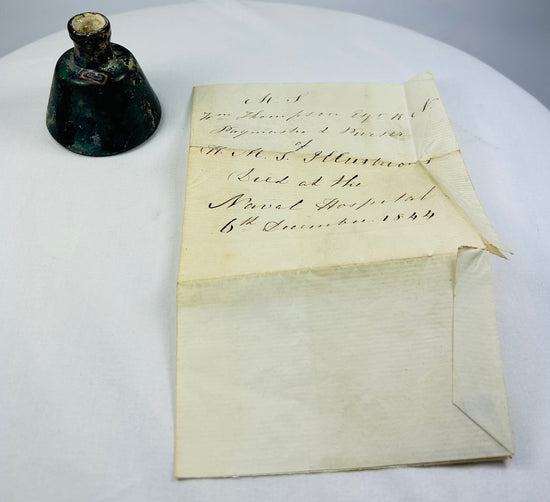 M. S
Wm Thompson Esqr R. N
Paymaster & Purser
of
H. M. S. Illustrious
Died at the
Naval Hospital
6th December 1844